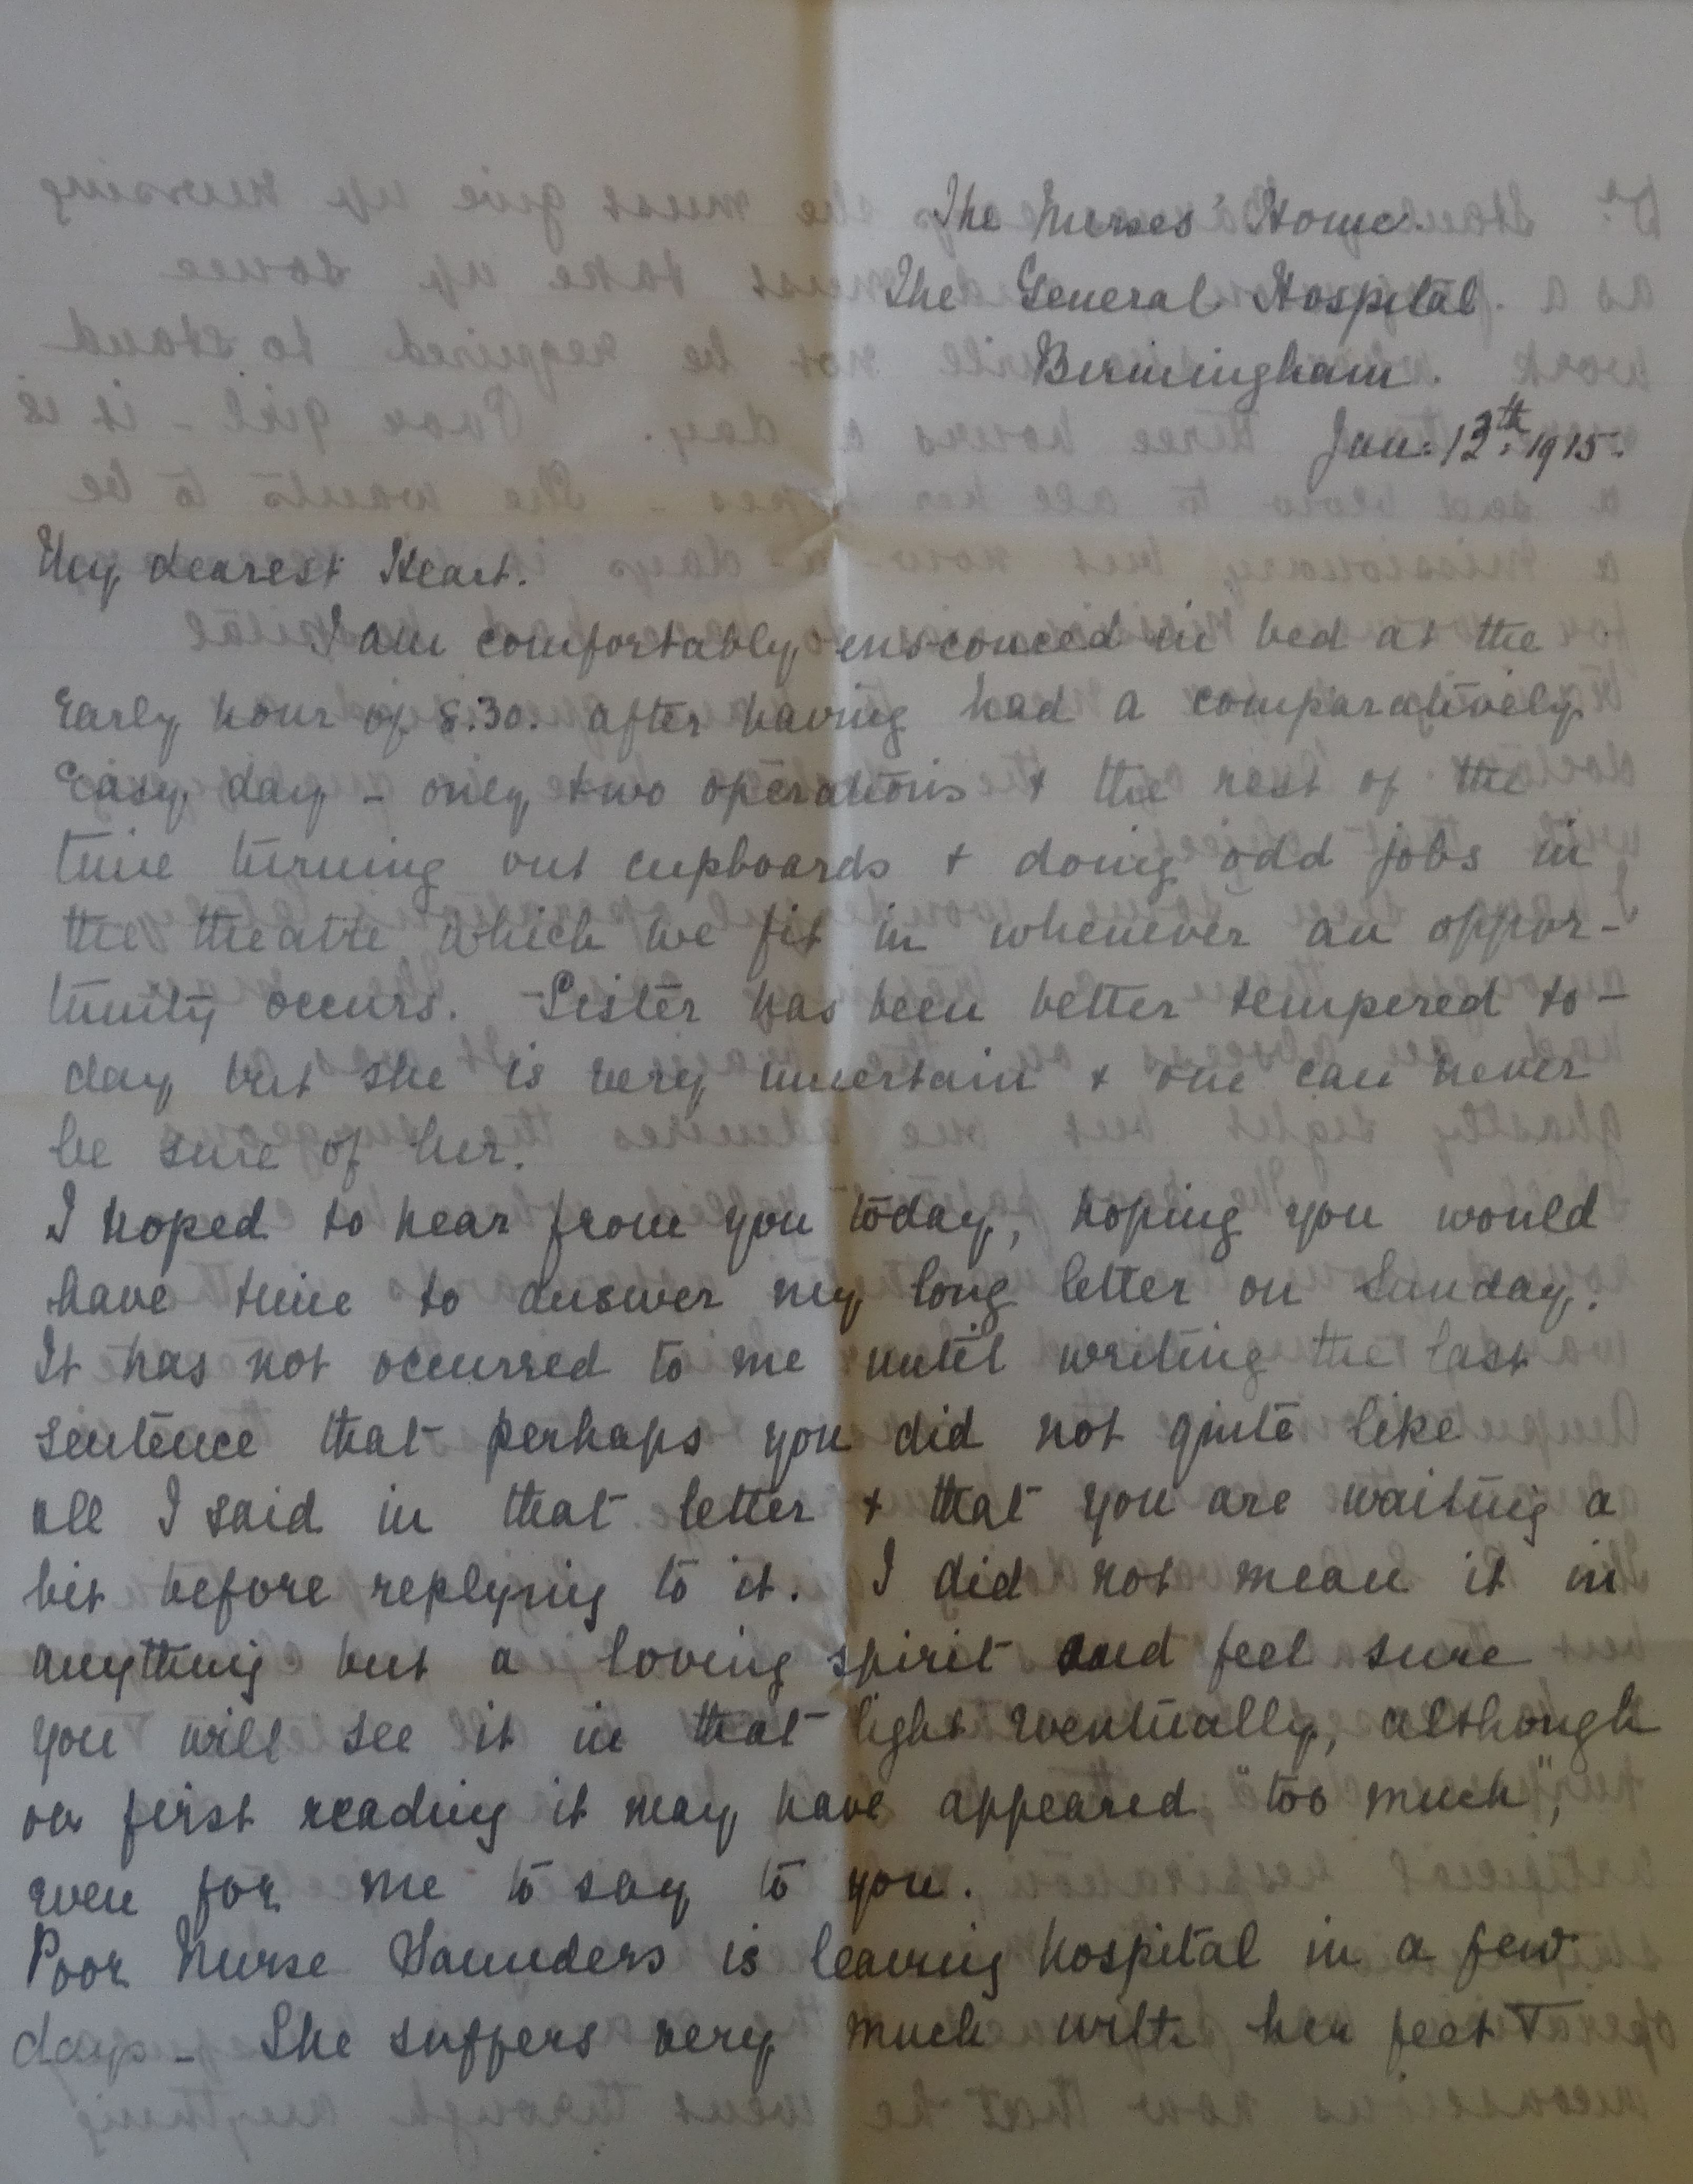 The Nurses' Home.
The General Hospital.
Birmingham.
Jan: 13th: 1915.
My dearest Heart.
I am comfortably ensconced in bed at the
early hour of 8.30. after having had a comparatively
easy day - only two operations & the rest of the
time turning out cupboards & doing odd jobs in
the theatre which we fit in whenever an oppor-
tunity occurs. Sister has been better tempered to-
day but she is very uncertain & one can never
be sure of her.
I hoped to hear from you today, hoping you would
have time to answer my long letter on Sunday.
It has not occurred to me until writing the last
sentence that perhaps you did not quite like
all I said in that letter & that you are waiting a
bit before replying to it. I did not mean it in
anything but a loving spirit and feel sure
you will see it in that light eventually, although
on first reading it may have appeared "too much",
even for me to say to you.
Poor Nurse Saunders is leaving hospital in a few
days - She suffers very much with her feet &